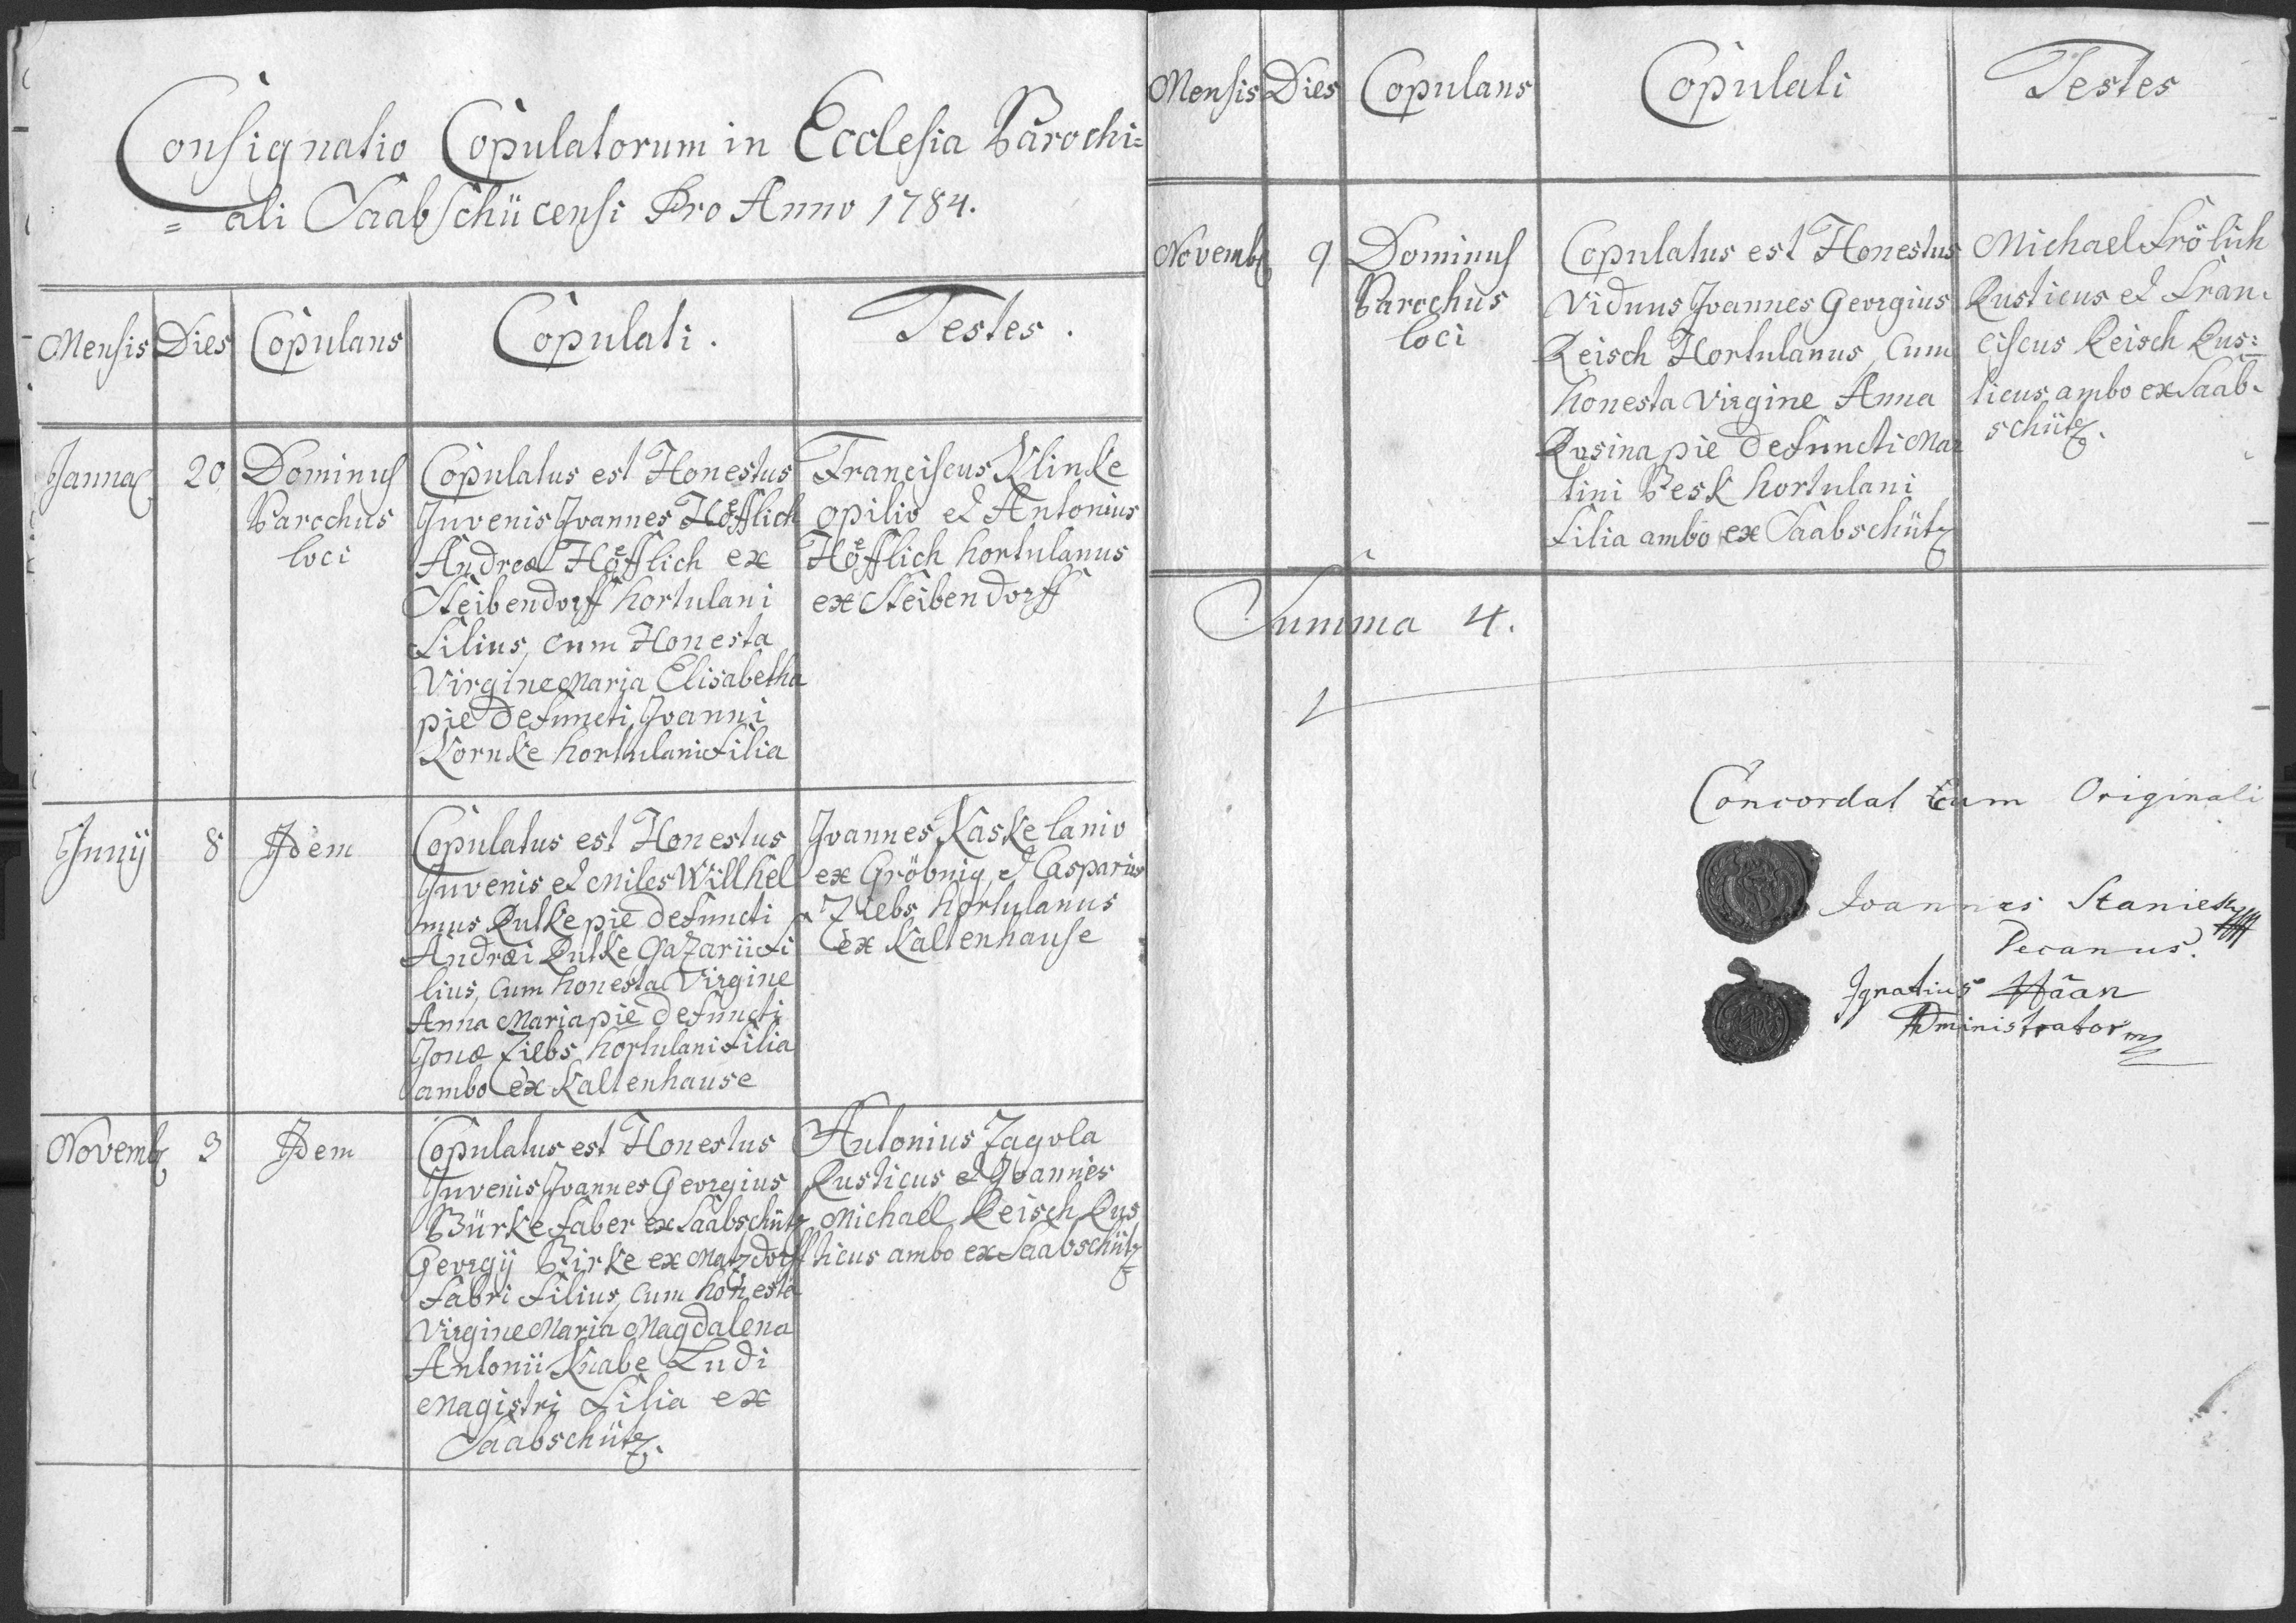 Consignatio Copulatorum in Ecclesia Parochi=
= ali Saabschücensi Pro Anno 1784.
Mensis Dies Copulans Copulati. Testes.
Januar 20 Dominus
Parochus
loci
Copulatus est Honestus
Juvenis Joannes Höfflich
Andreæ Höfflich ex
Steibendorff hortulani
Filius, cum Honesta
Virgine Maria Elisabetha
pie defuncti Joanni
Kornke hortulani Filia
Franciscus Klinke
opilio et Antonius
Höfflich hortulanus
ex Steibendorff
Junij 8 Idem
Copulatus est Honestus
Juvenis et Miles Willhel
mus Rutke pie defuncti
Andræi Rutke Gazarii fi
lius, cum honesta Virgine
Anna Maria pie defuncti
Jonæ Ziebs hortulani filia
ambo ex Kaltenhause
Joannes Kaske lanio
ex Gröbnig, et Casparius
Ziebs hortulanus
ex Kaltenhause
Novemb 3 Idem
Copulatus est Honestus
Juvenis Joannes Georgius
Bürke Faber ex Saabschütz
Georgij Birke ex Matzdorff
Fabri Filius, cum honesta
Virgine Maria Magdalena
Antonii Knabe Ludi
Magistri Filia ex
Saabschütz.
Antonius Jagola
Rusticus et Joannes
Michael Reisch Rus
ticus ambo ex Saabschütz
Mensis Dies Copulans Copulati Testes
Novemb 9 Dominus
Parochus
loci
Copulatus est Honestus
Viduus Joannes Georgius
Reisch Hortulanus, cum
honesta Virgine Anna
Rosina pie defuncti Mar
tini Besk hortulani
Filia ambo ex Saabschütz
Michael Frölich
Rusticus et Fran-
ciscus Reisch Rus=
ticus, ambo ex Saab-
schütz.
Summa 4.
Concordat cum Originali
Joannes Stanieck
Decanus.
Ignatius Haan
Administrator